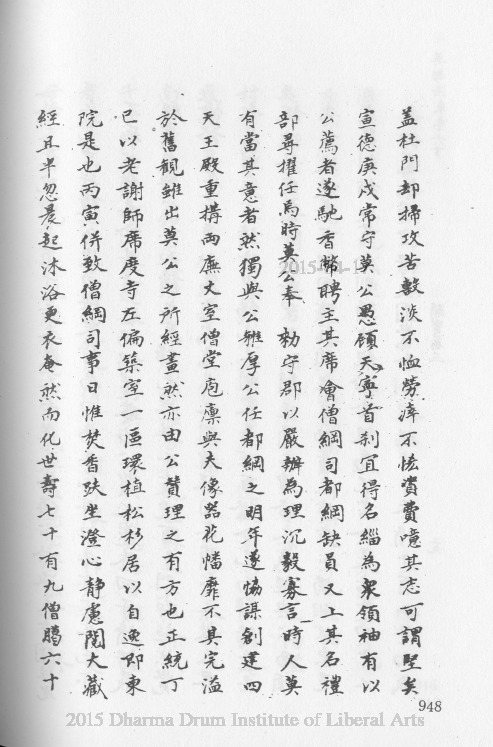 蓋杜門却掃攻苦䬸淡不恤勞瘁不恡賫費噫其志可謂堅矣
宣德庚戌常守莫公愚顧天寧首刹宜得名緇為衆領袖有以
公薦者遂馳香幣聘主其席會僧綱司都綱缺員又上其名禮
部尋擢任焉時莫公奉　勑守郡以嚴辦為理沉毅寡言一時人莫
有當其意者然獨與公雅厚公任都綱之明年遂協謀創建四
天王殿重搆兩廡丈室僧堂庖廪與夫像器花幡靡不具完溢
於舊觀雖出莫公之所經畫然亦由公贊理之有方也正統丁
巳以老謝師席度寺左偏築室一區環植松杉居以自逸即東
院是也丙寅併致僧綱司事日惟焚香趺坐澄心靜慮閱大藏
經且半忽晨起沐浴更衣奄然而化世壽七十有九僧臘六十
948
2015-04-1
2015 Dharma Drum Institute of Liberal Arts